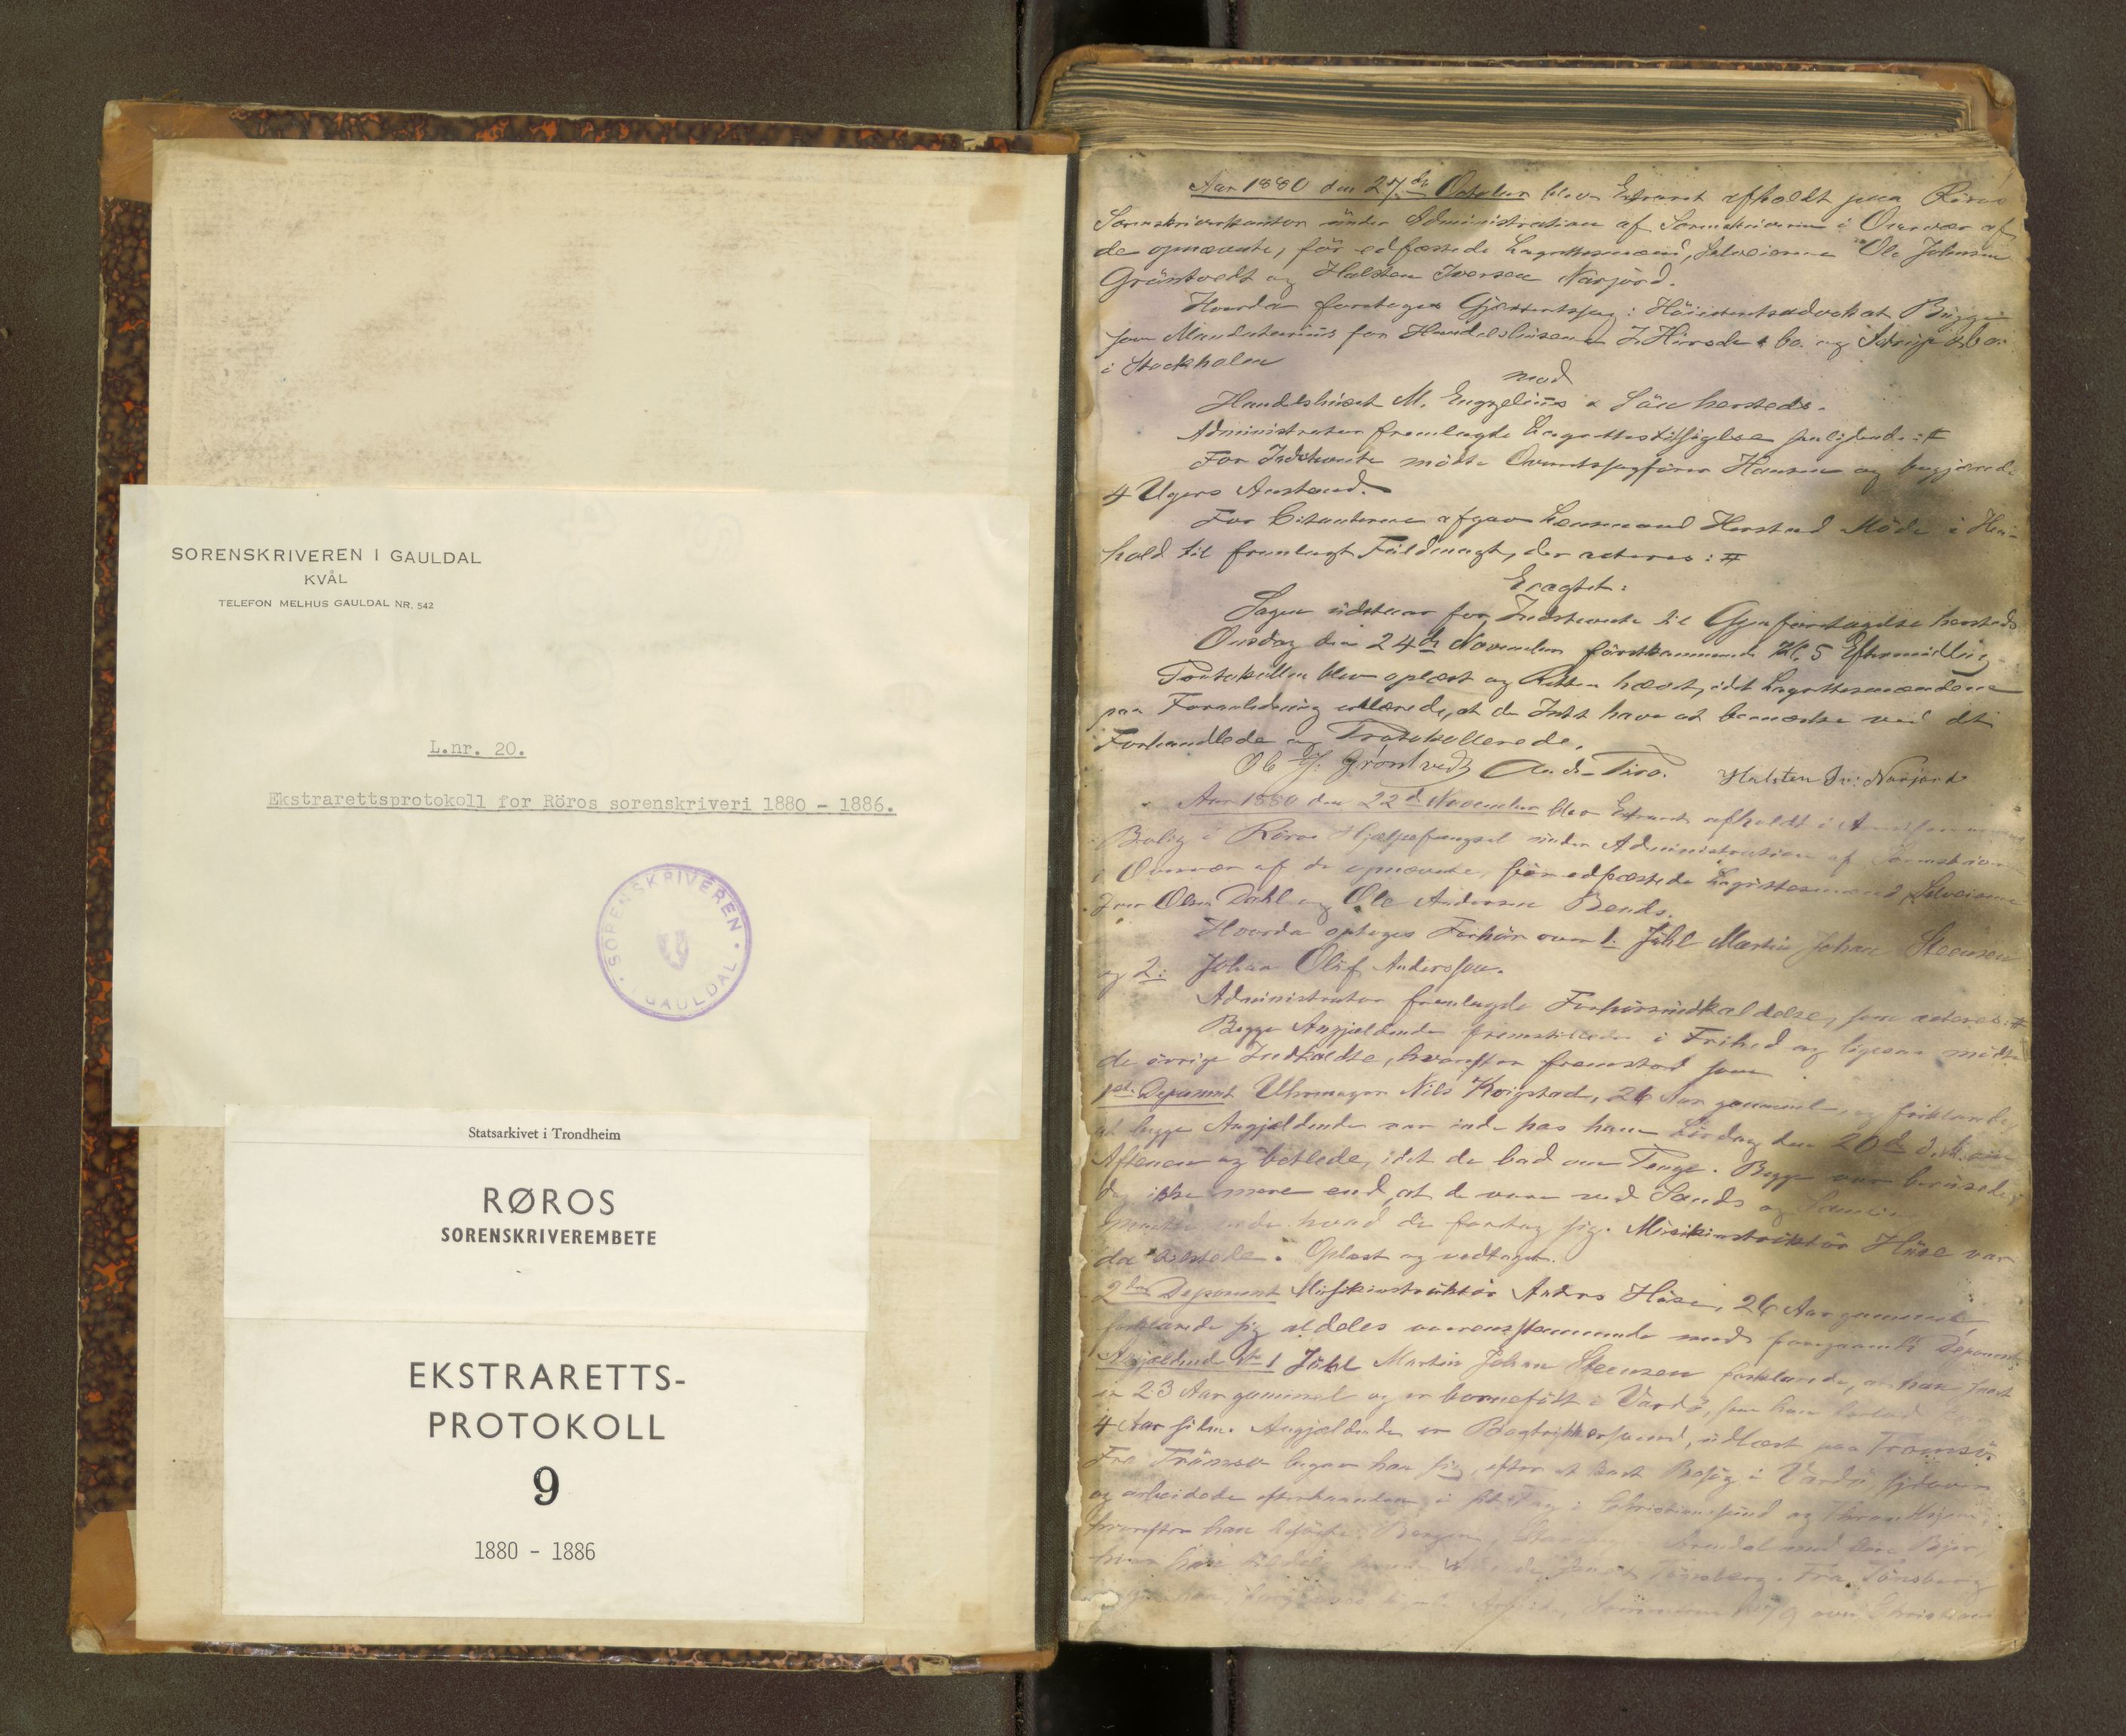 SORENSKRIVEREN I GAULDAL
KVÅL
TELEFON MELHUS GAULDAL NR. 542
L.nr. 20.
Ekstrarettsprotokoll for Röros sorenskriveri 1880 - 1886.
SORENSKRIVEREN • I GAULDAL •
Statsarkivet i Trondheim
RØROS
SORENSKRIVEREMBETE
EKSTRARETTS-
PROTOKOLL
9
1880 - 1886
Aar 1880 den 27de October blev Extraret afholdt paa Röros
Sorenskriverkontor under Administration af Sorenskriveren i Overvær af
de opnævnte, før edfæstede Lagrettesmænd, Selveierne Ole Johnsen
Gröntvedt og Halsten Iversen Narjord.
Hvorda foretoges Gjæsteretssag: Höiesteretsadvokat Bugge
som Mandatarius for Handelshusene
i Stockholm
mod
Handelshuset M. Engzelius & Sön hersteds.
Administrator fremlagde Lagrettestilsigelse saalydende: #
For Indstevnte mödte Overretssagförer Hansen og begjærede
4 Ugers Anstand.
For Citanterne afgav Lensmand Herstad Möde i Hen-
hold til fremlagt Fuldmagt, der acteres: #
Eragtet:
Sagen udstaar for Indstevnte til Gjenforetagelse hersteds
Onsdag den 24de November förstkommende Kl. 5 Eftermiddag
Protokollen blev oplæst og Retten hævet, idet Lagrettesmændene
paa Foranledning erklærede, at de Intet have at bemærke ved det
Forhandlede og Protokollerede.
Ole J. Gröntvedt Halsten Iv: Narjord
Aar 1880 den 22de November blev Extraret afholdt i
Bolig i Röros Hjælpefængsel under Administration af Sorenskriveren
i Overvær af de opnævnte, för edfæstede Lagrettesmænd, Selveierne
Iver Olsen Dahl og Ole Andersen Bends.
Hvorda optoges Forhör over 1: Juhl Martin Johan Steensen
og 2: Johan Oluf Andersson.
Administrator fremlagde Forhörsindkaldelse, som acteres: #
Begge Angjældende fremstilledes i Frihed og ligesaa mödte
de övrige Indkaldte, hvorefter fremstod som
1ste Deponent Uhrmager Nils Kvigstad, 26 Aar gammel, og forklarede,
at begge Angjældende var inde hos ham Lördag den 20de d. M. om
Aftenen og betlede, idet de bad om Penge. Begge var berusede,
dog ikke mere end at de vare ved Sands og Samling
hvad de foretog sig. Musikinstruktör Huse var
da tilstede. Oplæst og vedtaget.
2den Deponent Musikinstruktör Anders Huse, 26 Aar gammel,
forklarede sig aldeles overensstemmende med foregaaende Deponent.
Angjældende No 1 Juhl Martin Johan Steensen forklarede, at han
er 23 Aar gammel og er barnefödt i Vardö, som han forlod
4 Aar siden. Angjældende er Bogtrykkersvend, udlært paa Tromsö.
Fra Tromsö begav han sig, efter et kort Besög i Vardö sydover
og arbeidede efterhaanden i sit Fag i Christiansund og Throndhjem,
hvorefter han besögte Bergen, Arendal med flere Byer,
Tönsberg. Fra Tönsberg
Sommeren 1879 over Christiania